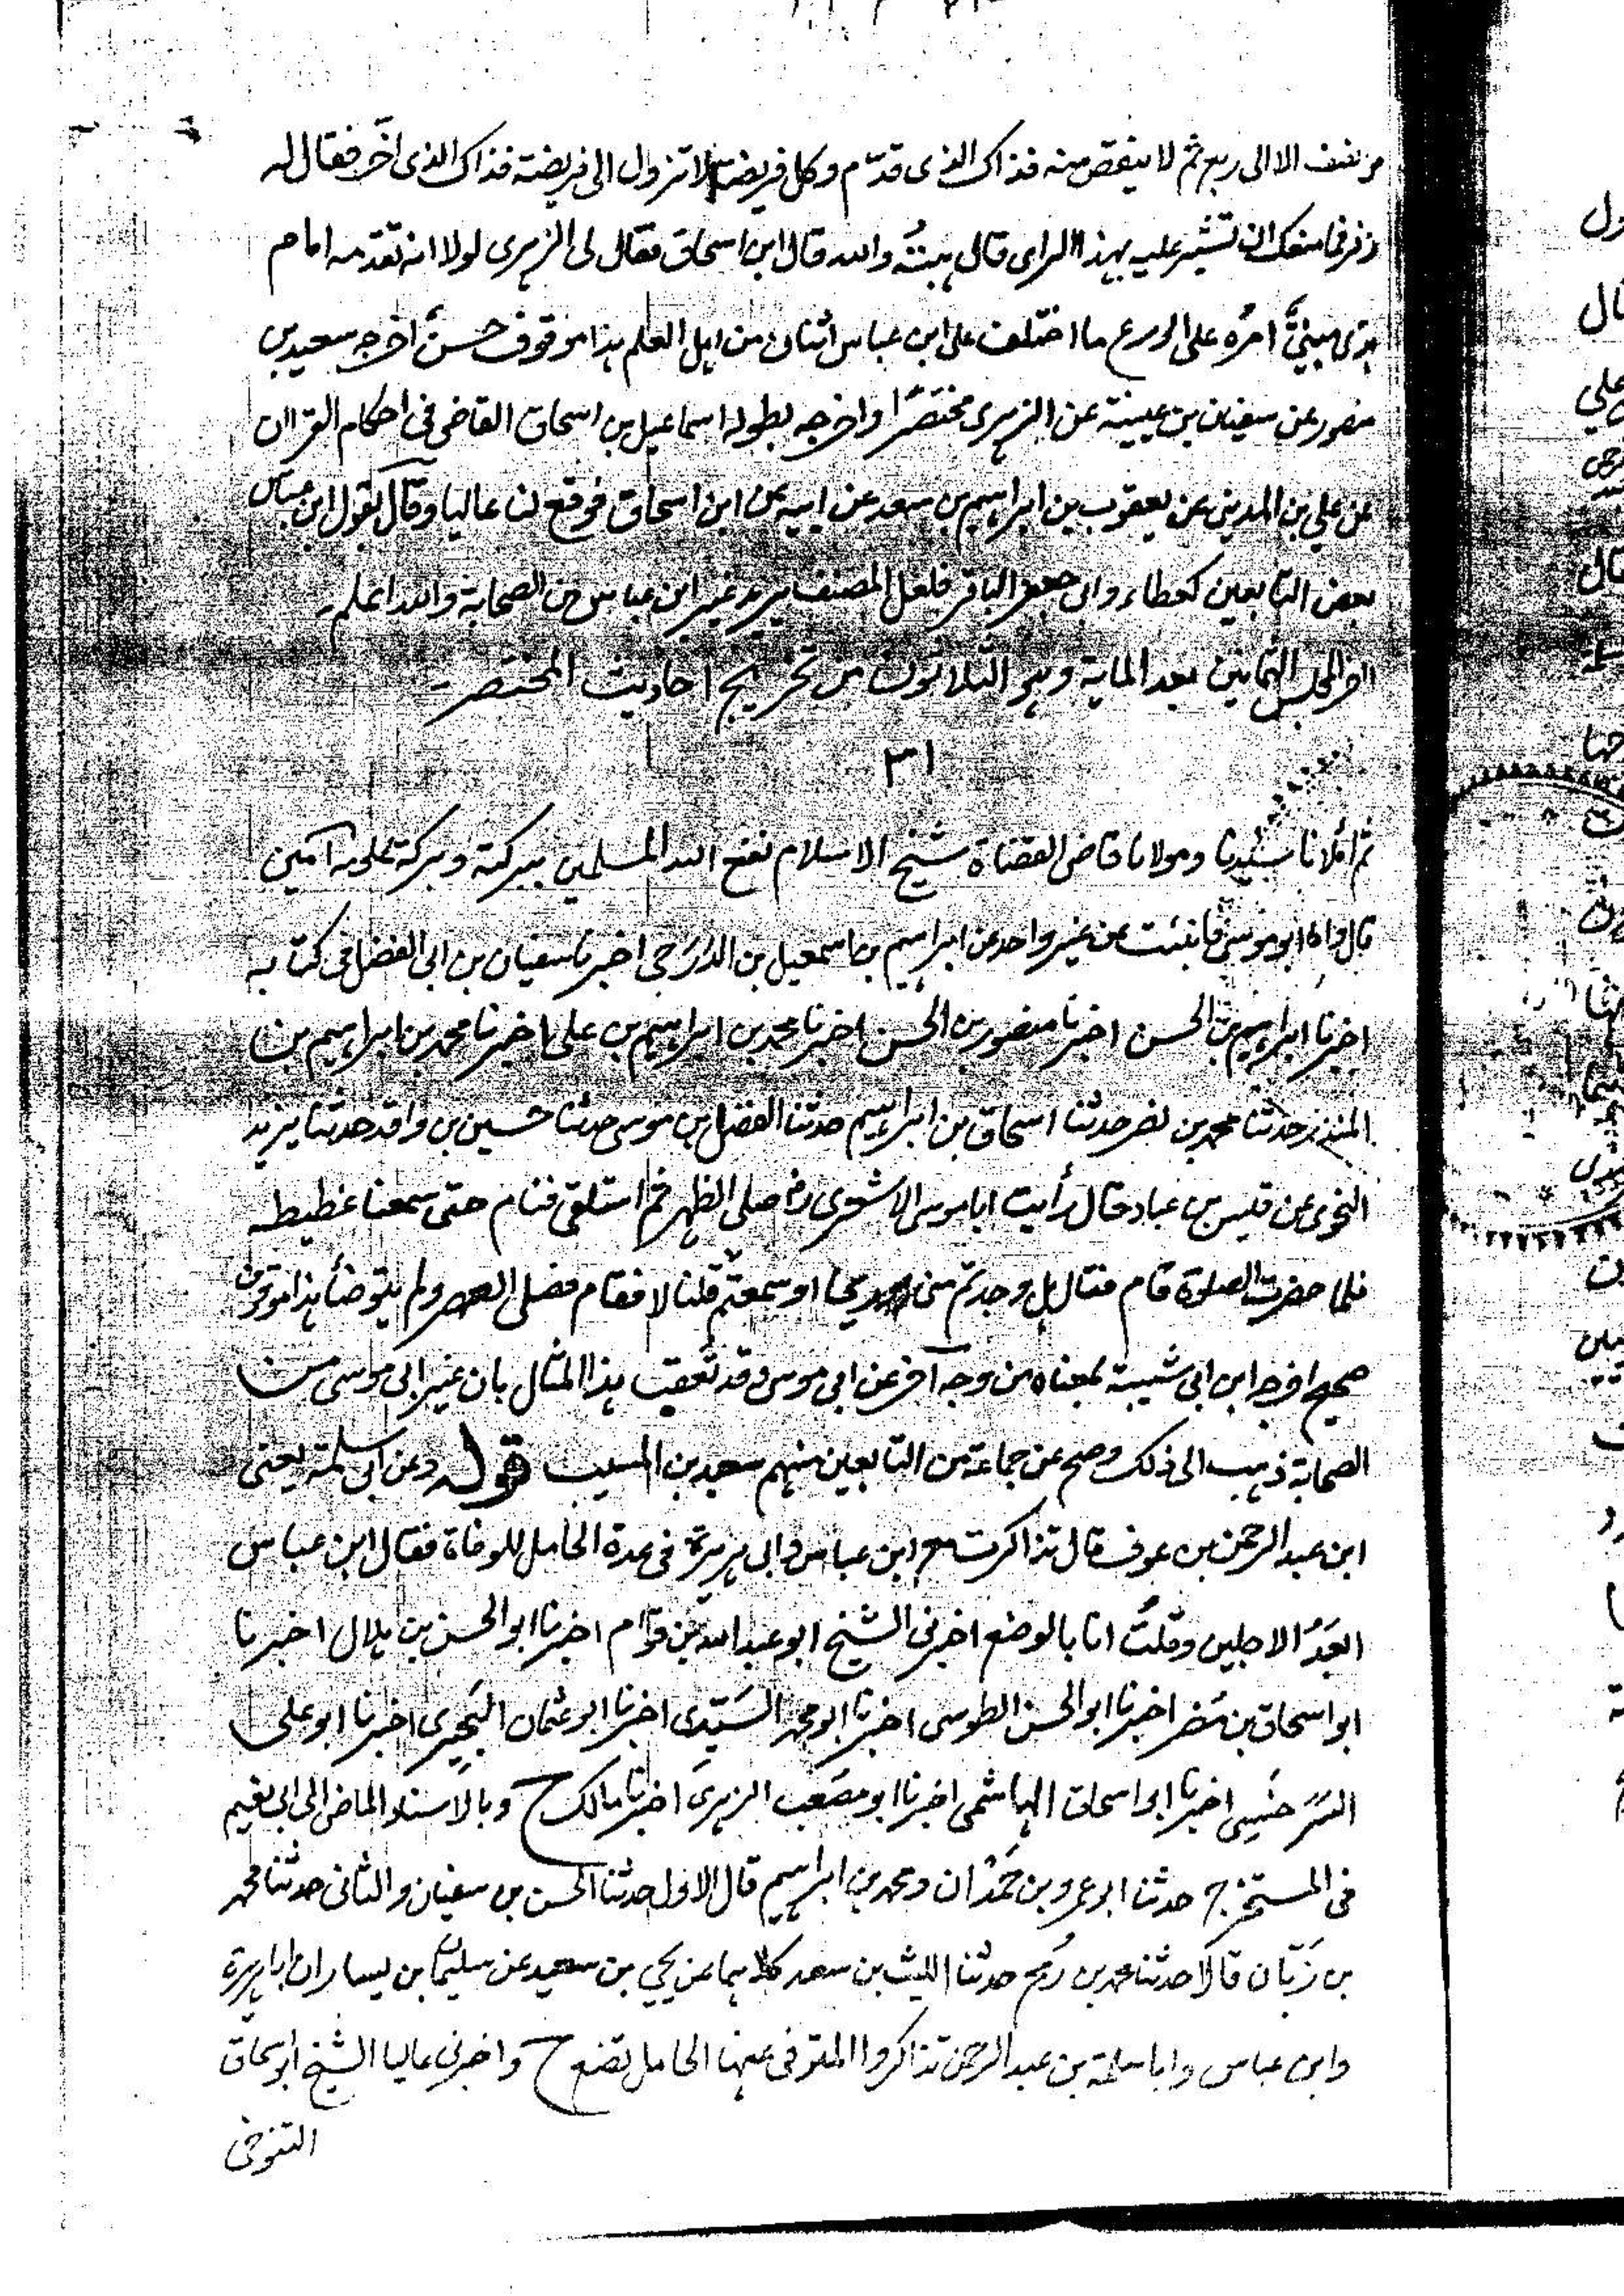 من نصف الا الى ربع ثم لا ينقص منه فذاك الذى قدّم وكل فريضة لا تزول الى فريضة فذاك الذى اخّر فقال له
زفر فما منعك ان تشير عليه بهذا الراى قال هبتُه والله قال ابن اسحاق فقال لى الزهرى لولا انه تقدمه امام
هدى مبنيٌّ امرُه على الورع ما اختلف على ابن عباس اثنان من اهل العلم هذا موقوف حسنٌ اخرجه سعيد بن
منصور عن سفيان بن عيينة عن الزهرى مختصرًا واخرجه بطوله اسماعيل بن اسحاق القاضى فى احكام القران
عن علي بن المدينى عن يعقوب بن ابراهيم بن سعد عن ابيه عن ابن اسحاق فوقع لنا عاليا وقال بقول ابن عباس
بعض التابعين كعطاء وابى جعفر الباقر فلعل المصنف يريد غير ابن عباس من الصحابة والله اعلم
اخر المجلس الثمانين بعد الماية وهو الثلاثون من تخريج احاديث المختصر
٣١
ثم املانا سيدنا ومولانا قاضى القضاة شيخ الاسلام نفع الله المسلمين ببركته وبركة علومه آمين
قال واما ابو موسى فانبئت عن غير واحد عن ابراهيم بن اسمعيل بن الدَرَجى اخبرنا سفيان بن ابى الفضل فى كتابه
اخبرنا ابراهيم بن الحسن اخبرنا منصور بن الحسن اخبرنا محمد بن ابراهيم بن على اخبرنا محمد بن ابراهيم بن
المنذر حدثنا محمد بن نصر حدثنا اسحاق بن ابراهيم حدثنا الفضل بن موسى حدثنا حسين بن واقد حدثنا يزيد
النحوى عن قيس بن عباد قال رأيت ابا موسى الاشعرى رض صلى الظهر ثم استلقى فنام حتى سمعنا غطيطه
فلما حضرت الصلوة قام فقال هل وجدتم منى ريحا او سمعتم قلنا لا فقام فصلى العصر ولم يتوضأ هذا موقوف
صحيح اخرجه ابن ابى شيبة بمعناه من وجه آخر عن ابى موسى وقد تُعقب هذا المثال بان غير ابى موسى من
الصحابة ذهب الى ذلك وصح عن جماعة من التابعين منهم سعيد بن المسيب قوله وعن ابى سلمة يعنى
ابن عبد الرحمن بن عوف قال تذاكرت مع ابن عباس وابى هريرة فى عدة الحامل للوفاة فقال ابن عباس
ابعَدُ الاجلين وقلتُ انا بالوضع اخبرنى الشيخ ابو عبد الله بن قوام اخبرنا ابو الحسن بن هلال اخبرنا
ابو اسحاق بن مُضر اخبرنا ابو الحسن الطوسى اخبرنا ابو محمد السَيّدى اخبرنا ابو عثمان البَحِيرى اخبرنا ابو على
السَرَخسِى اخبرنا ابو اسحاق الهاشمى اخبرنا ابو مصعب الزهرى اخبرنا مالك ح وبالاسناد الماضى الى ابى نعيم
فى المستخرج حدثنا ابو عمرو بن حَمْدان ومحمد بن ابراهيم قال الاول حدثنا الحسن بن سفيان والثانى حدثنا محمد
بن زَبّان قالا حدثنا محمد بن رُمح حدثنا الليث بن سعد كلاهما عن يحيى بن سعيد عن سليمان بن يسار ان ابا هريرة
وابن عباس وابا سلمة بن عبد الرحمن تذاكروا المتوفى عنها الحامل تضع ح واخبرنى عاليا الشيخ ابو اسحاق
التنوخى